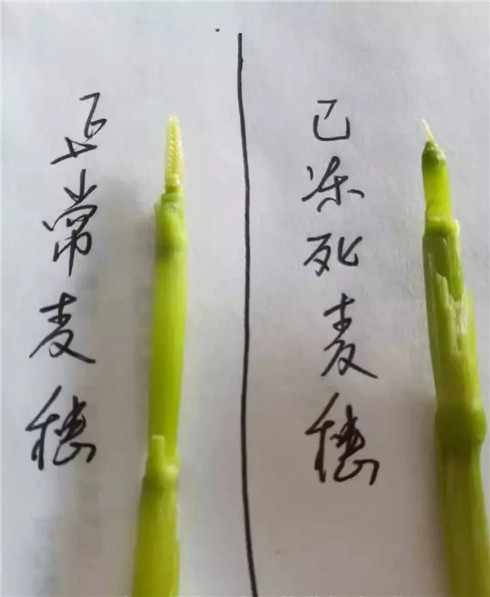 正常麦穗
已冻死麦穗